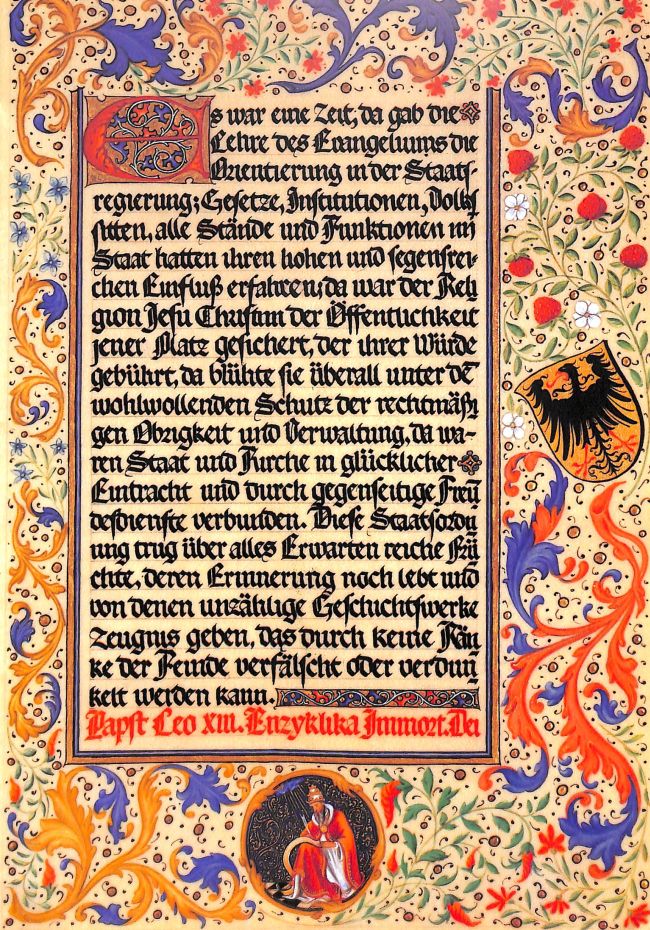 Es war eine Zeit, da gab die
Lehre des Evangeliums die
Orientierung in der Staats
regierung; Gesetze, Institutionen, Volks
sitten, alle Stände und Funktionen im
Staat hatten ihren hohen und segensrei-
chen Einfluß erfahren; da war der Reli
gion Jesu Christi in der Öffentlichkeit
jener Platz gesichert, der ihrer Würde
gebührt, da blühte sie überall unter dē
wohlwollenden Schutz der rechtmäßi
gen Obrigkeit und Verwaltung, da wa-
ren Staat und Kirche in glücklicher
Eintracht und durch gegenseitige Freū
desdienste verbunden. Diese Staatsordn
ung trug über alles Erwarten reiche Frü
chte, deren Erinnerung noch lebt und
von denen unzählige Geschichtswerke
Zeugnis geben, das durch keine Rän
ke der Feinde verfälscht oder verdun̄
kelt werden kann.
Papst Leo XIII. Enzyklika Immort. Dei